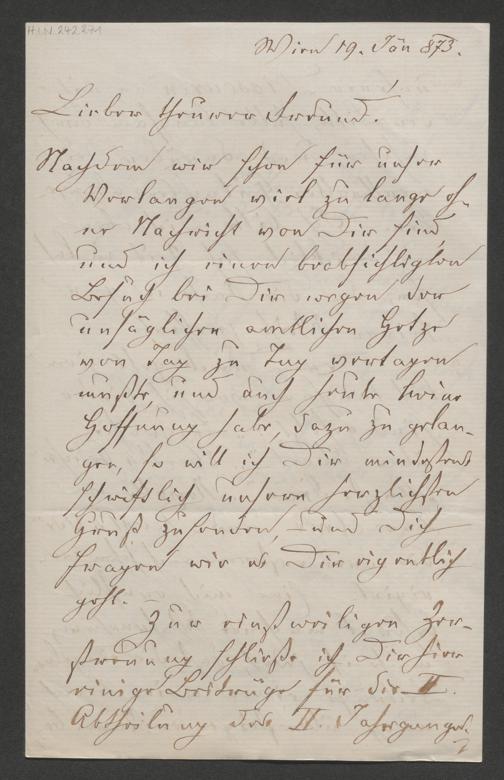 H.I.N. 242.271
Wien 19. Jän 873.
Lieber theurer Freund!
Nachdem wir schon für unser
Verlangen viel zu lange oh-
ne Nachricht von Dir sind,
und ich einen beabsichtigten
Besuch bei Dir wegen der
unsäglichen amtlichen Hetze
von Tag zu Tag vertagen
mußte, und auch heute keine
Hoffnung habe, dazu zu gelan-
gen, so will ich Dir mindestens
schriftlich unsern herzlichsten
Gruß zusenden, und Dich
fragen wie es Dir eigentlich
geht.
Zur einstweiligen Zer-
streuung schließe ich Dir hier
einige Beiträge für die II.
Abtheilung des II. Jahrganges